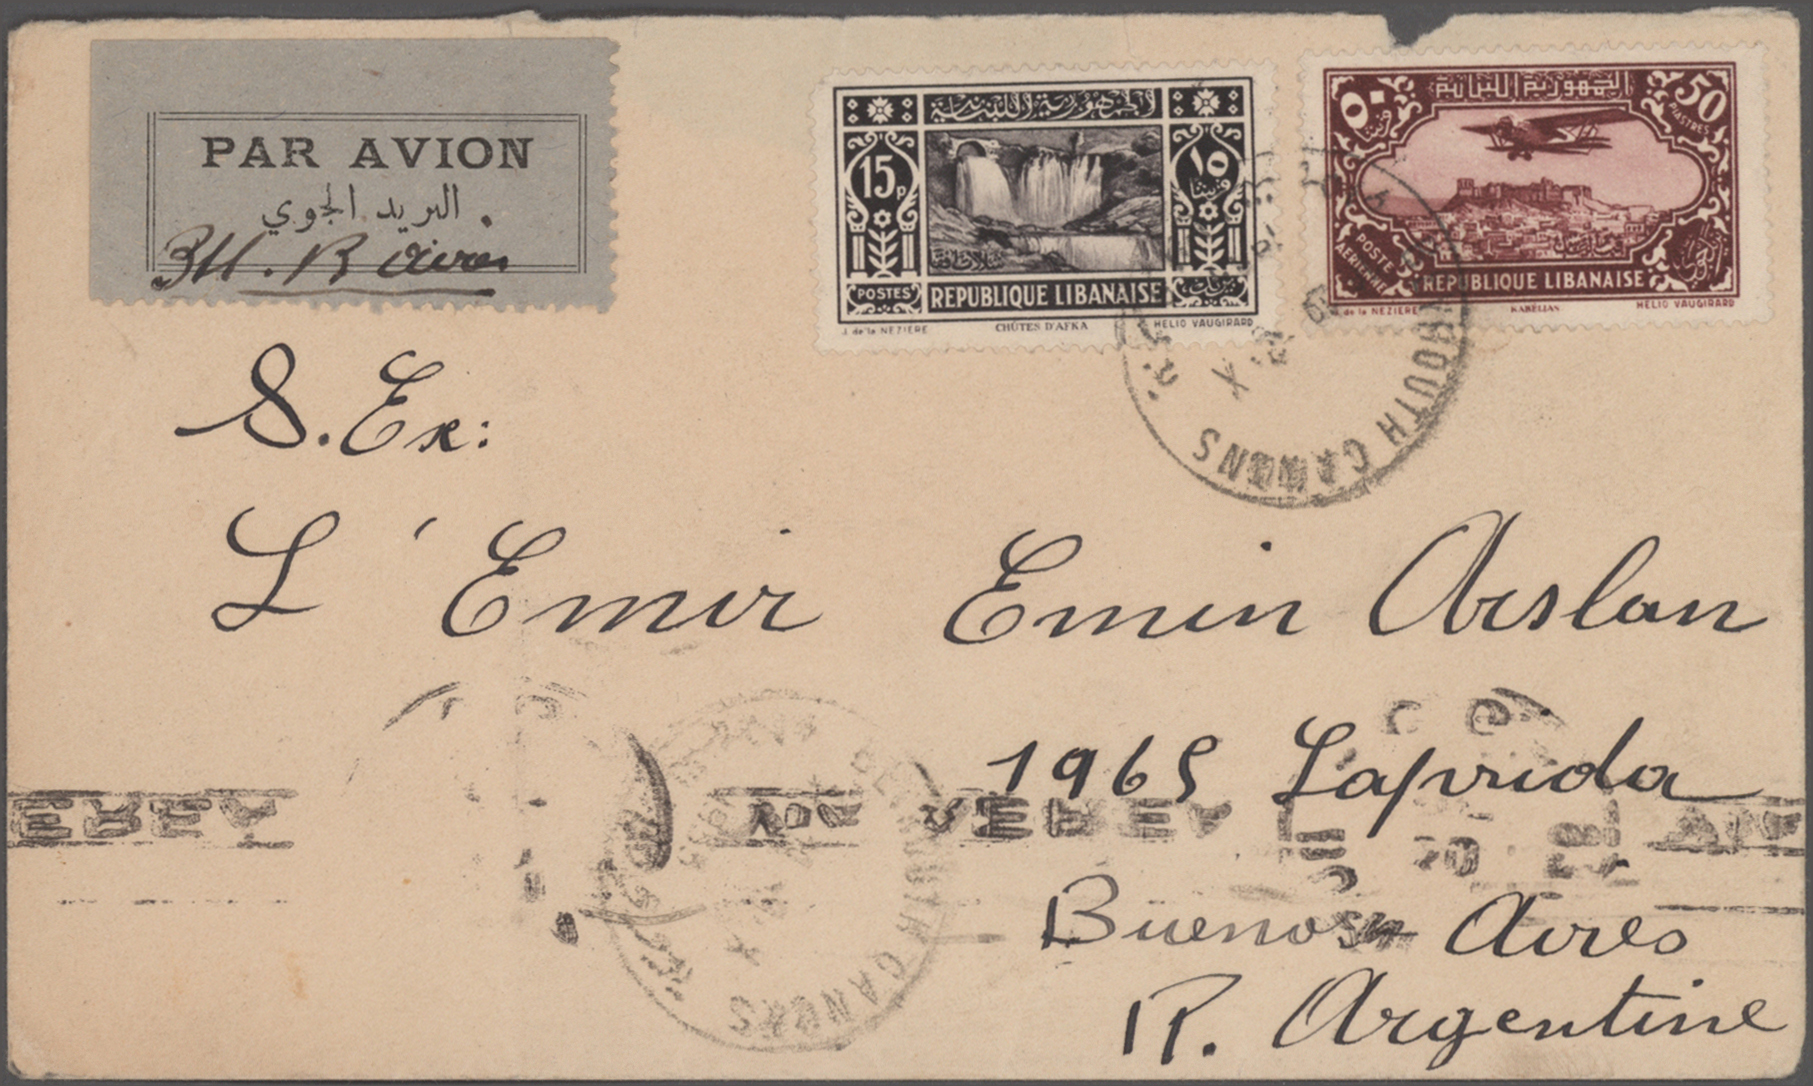 PAR AVION
البريد الجوي
الجمهورية اللبنانية
15 P
١٥
شلالات افقا
POSTES
REPUBLIQUE LIBANAISE
J. de la NEZIERE
CHÛTES D'AFKA
HELIO VAUGIRARD
الجمهورية اللبنانية
٥٠
50
PIASTRES
POSTE
AERIENNE
REPUBLIQUE LIBANAISE
de la NEZIERE
KABÉLIAS
HELIO VAUGIRARD
BEYROUTH CANONS
S. Ex:
L'Emir Emin Arslan
1965 Laprida
Buenos Aires
R. Argentine
BEYROUTH CANONS